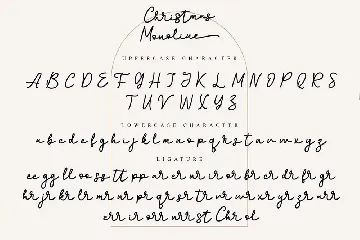 Christmas
Monoline
UPPERCASE CHARACTER
A B C D E F G H I J K L M N O P Q R S
T U V W X Y Z
LOWERCASE CHARACTER
a b c d e f g h i j k l m n o p q r s t u v w x y z
LIGATURE
ee gg ll oo ss tt pp ar er ur ir or br cr dr fr gr
hr jr kr lr mr nr pr qr sr tr vr wr xr yr zr arr
err ir orr urr st Chr ol